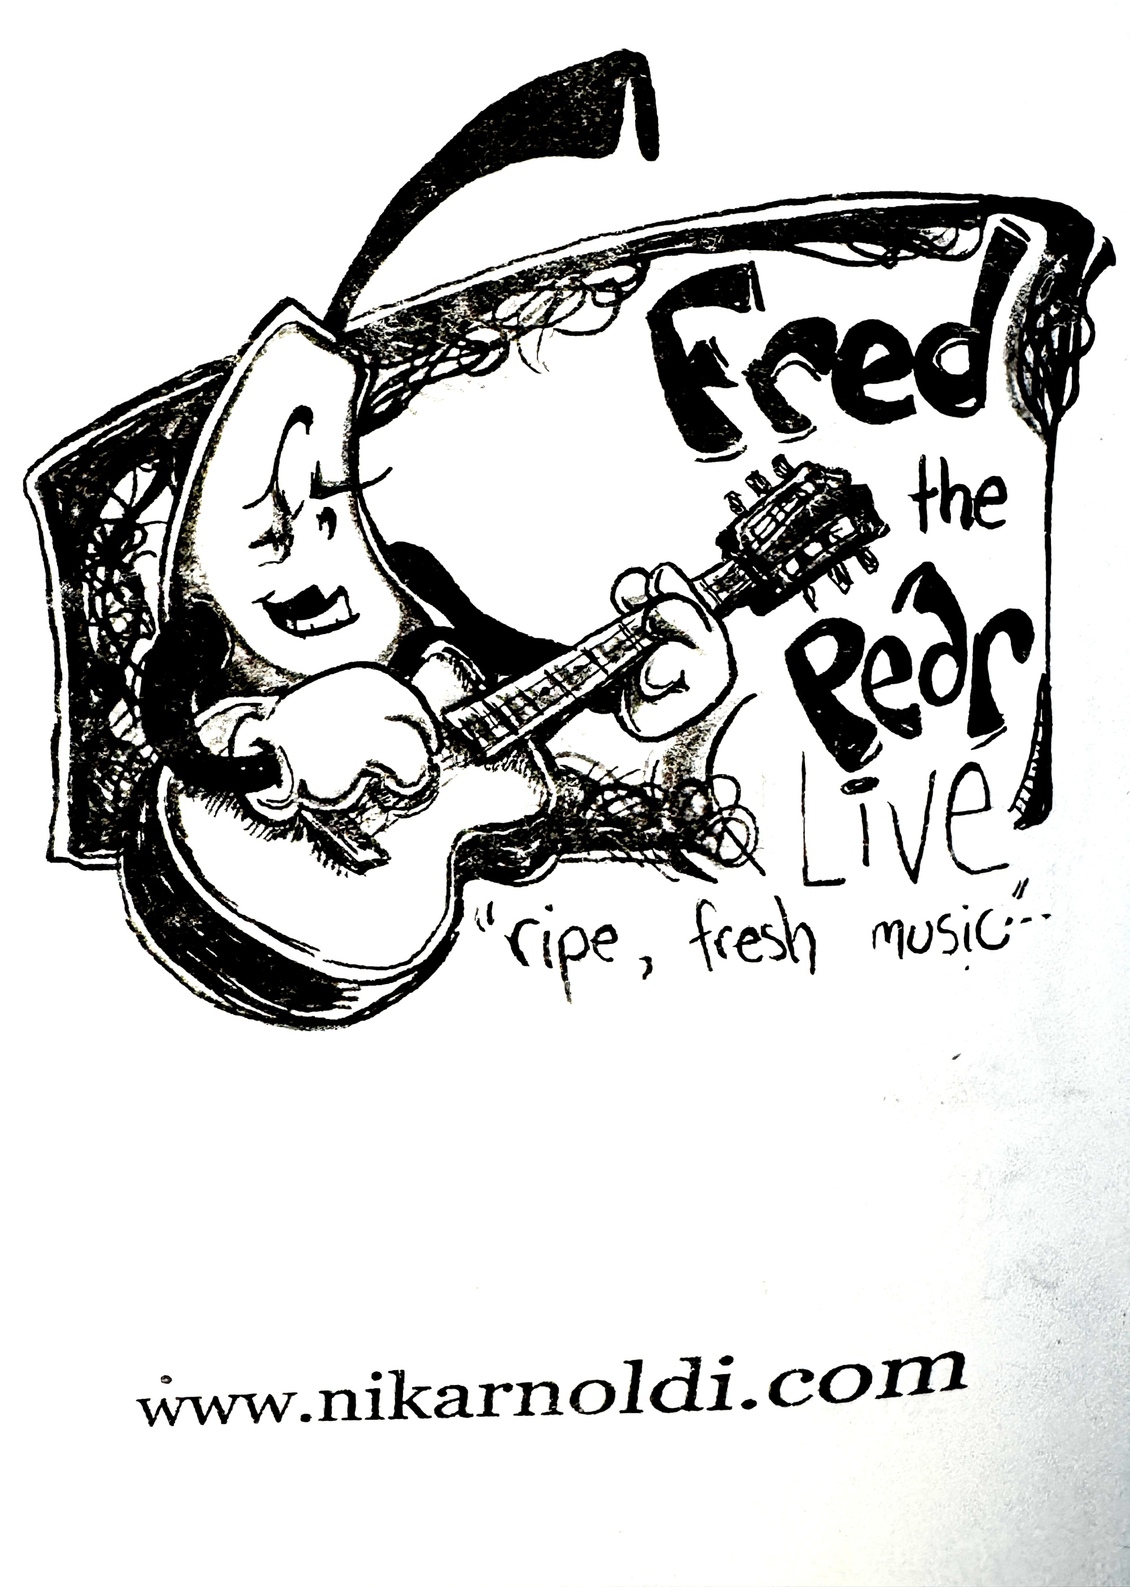 Fred
the
Pear
Live
"ripe, fresh music"...
www.nikarnoldi.com